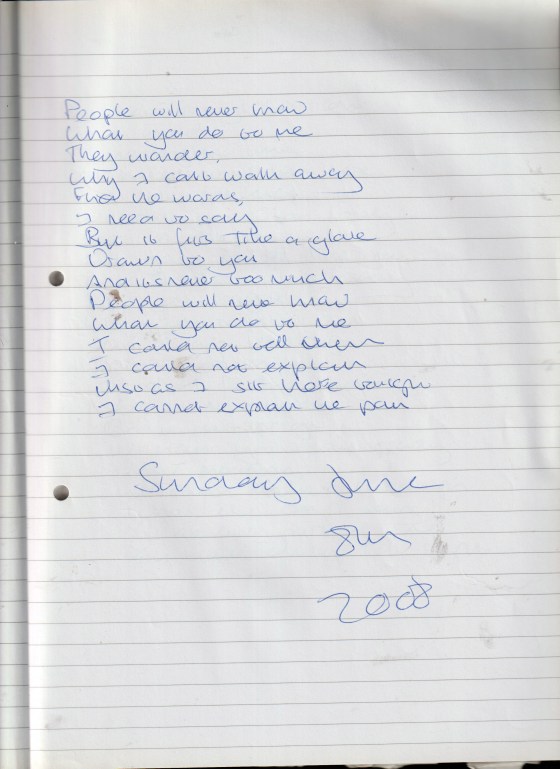 People will never know
What you do to me
They wonder,
Why I can't walk away
Find the words,
I need to say
But it fits like a glove
Drawn to you
And it's never too much
People will never know
What you do to me
I could not tell them
I could not explain
as I sit here tonight
I cannot explain the pain
Sunday June
8th
2008